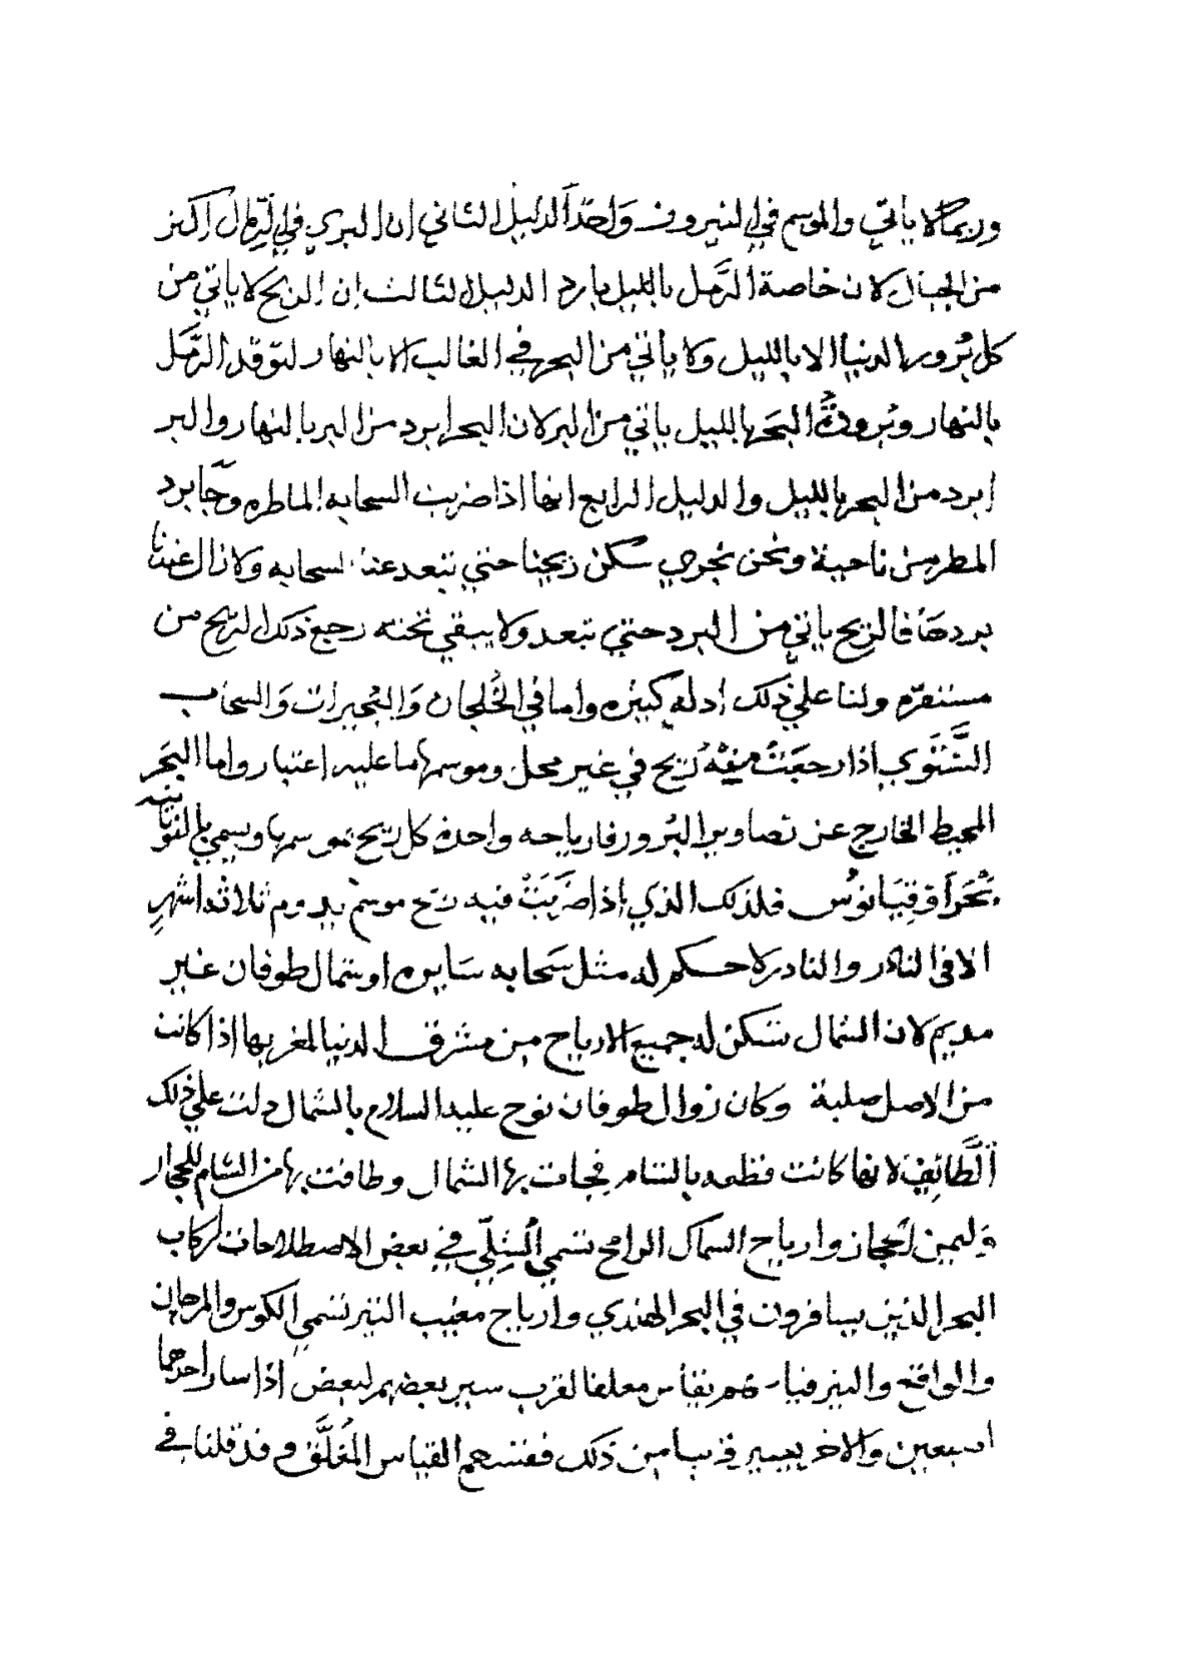 وربما لا ياتي والموسم في النيروز واحدا الدليل الثاني ان البري في الرمل اكثر
من الجبال لان خاصة الرمل بالليل بارد الدليل الثالث ان الريح لا ياتي من
كل برور الدنيا الا بالليل ولا ياتي من البحر في الغالب الا بالنهار لتوقد الرمل
بالنهار وبرودة البحر بالليل ياتي من البر لان البحر ابرد من البر بالنهار والبر
ابرد من البحر بالليل والدليل الرابع انها اذا ضربت السحابه الماطره وجآ برد
المطر من ناحية ونحن نجري سكن ريحنا حتي تبعد عنا السحابه ولا زال عندنا
بردها فالريح ياتي من البرد حتي تبعد ولا يبقي تحته رجع ذلك الريح من
مستقره ولنا علي ذلك ادله كثيره واما في الخلجان والبحيرات والسحاب
الشتوي اذا رجعت منه ريح في غير محل وموسمها ما عليه اعتبار واما البحر
المحيط الخارج عن تصاوير البرور فارياحه واحدة كل ريح بموسمها ويسمي باليونانيه
بحر اوقيانوس فلذلك الذي اذا ضربت فيه ريح موسم يدوم ثلاثة اشهر
الا في النادر والنادر لا حكم له مثل سحابه سايره او شمال طوفان غير
مديم لان الشمال تسكن له جميع الارياح من مشرق الدنيا لمغربها اذا كانت
من الاصل صلبة وكان زوال طوفان نوح عليه السلام بالشمال دلت علي ذلك
الطائف لانها كانت قطعه بالشام فجات بها الشمال وطافت بها من الشام للحجاز
وليمن الحجاز وارياح السماك الرامح تسمي البنلي في بعض الاصطلاحات لركاب
البحر الذين يسافرون في البحر الهندي وارياح مغيب التير تسمي الكوس والمرجان
والواقع والتير فيا هم يقاس معلقا لقرب سير بعضهم لبعض اذا سار احدهما
اسبعين والاخر يسير قريبا من ذلك فقس عم القياس المغلق وقد قلنا في